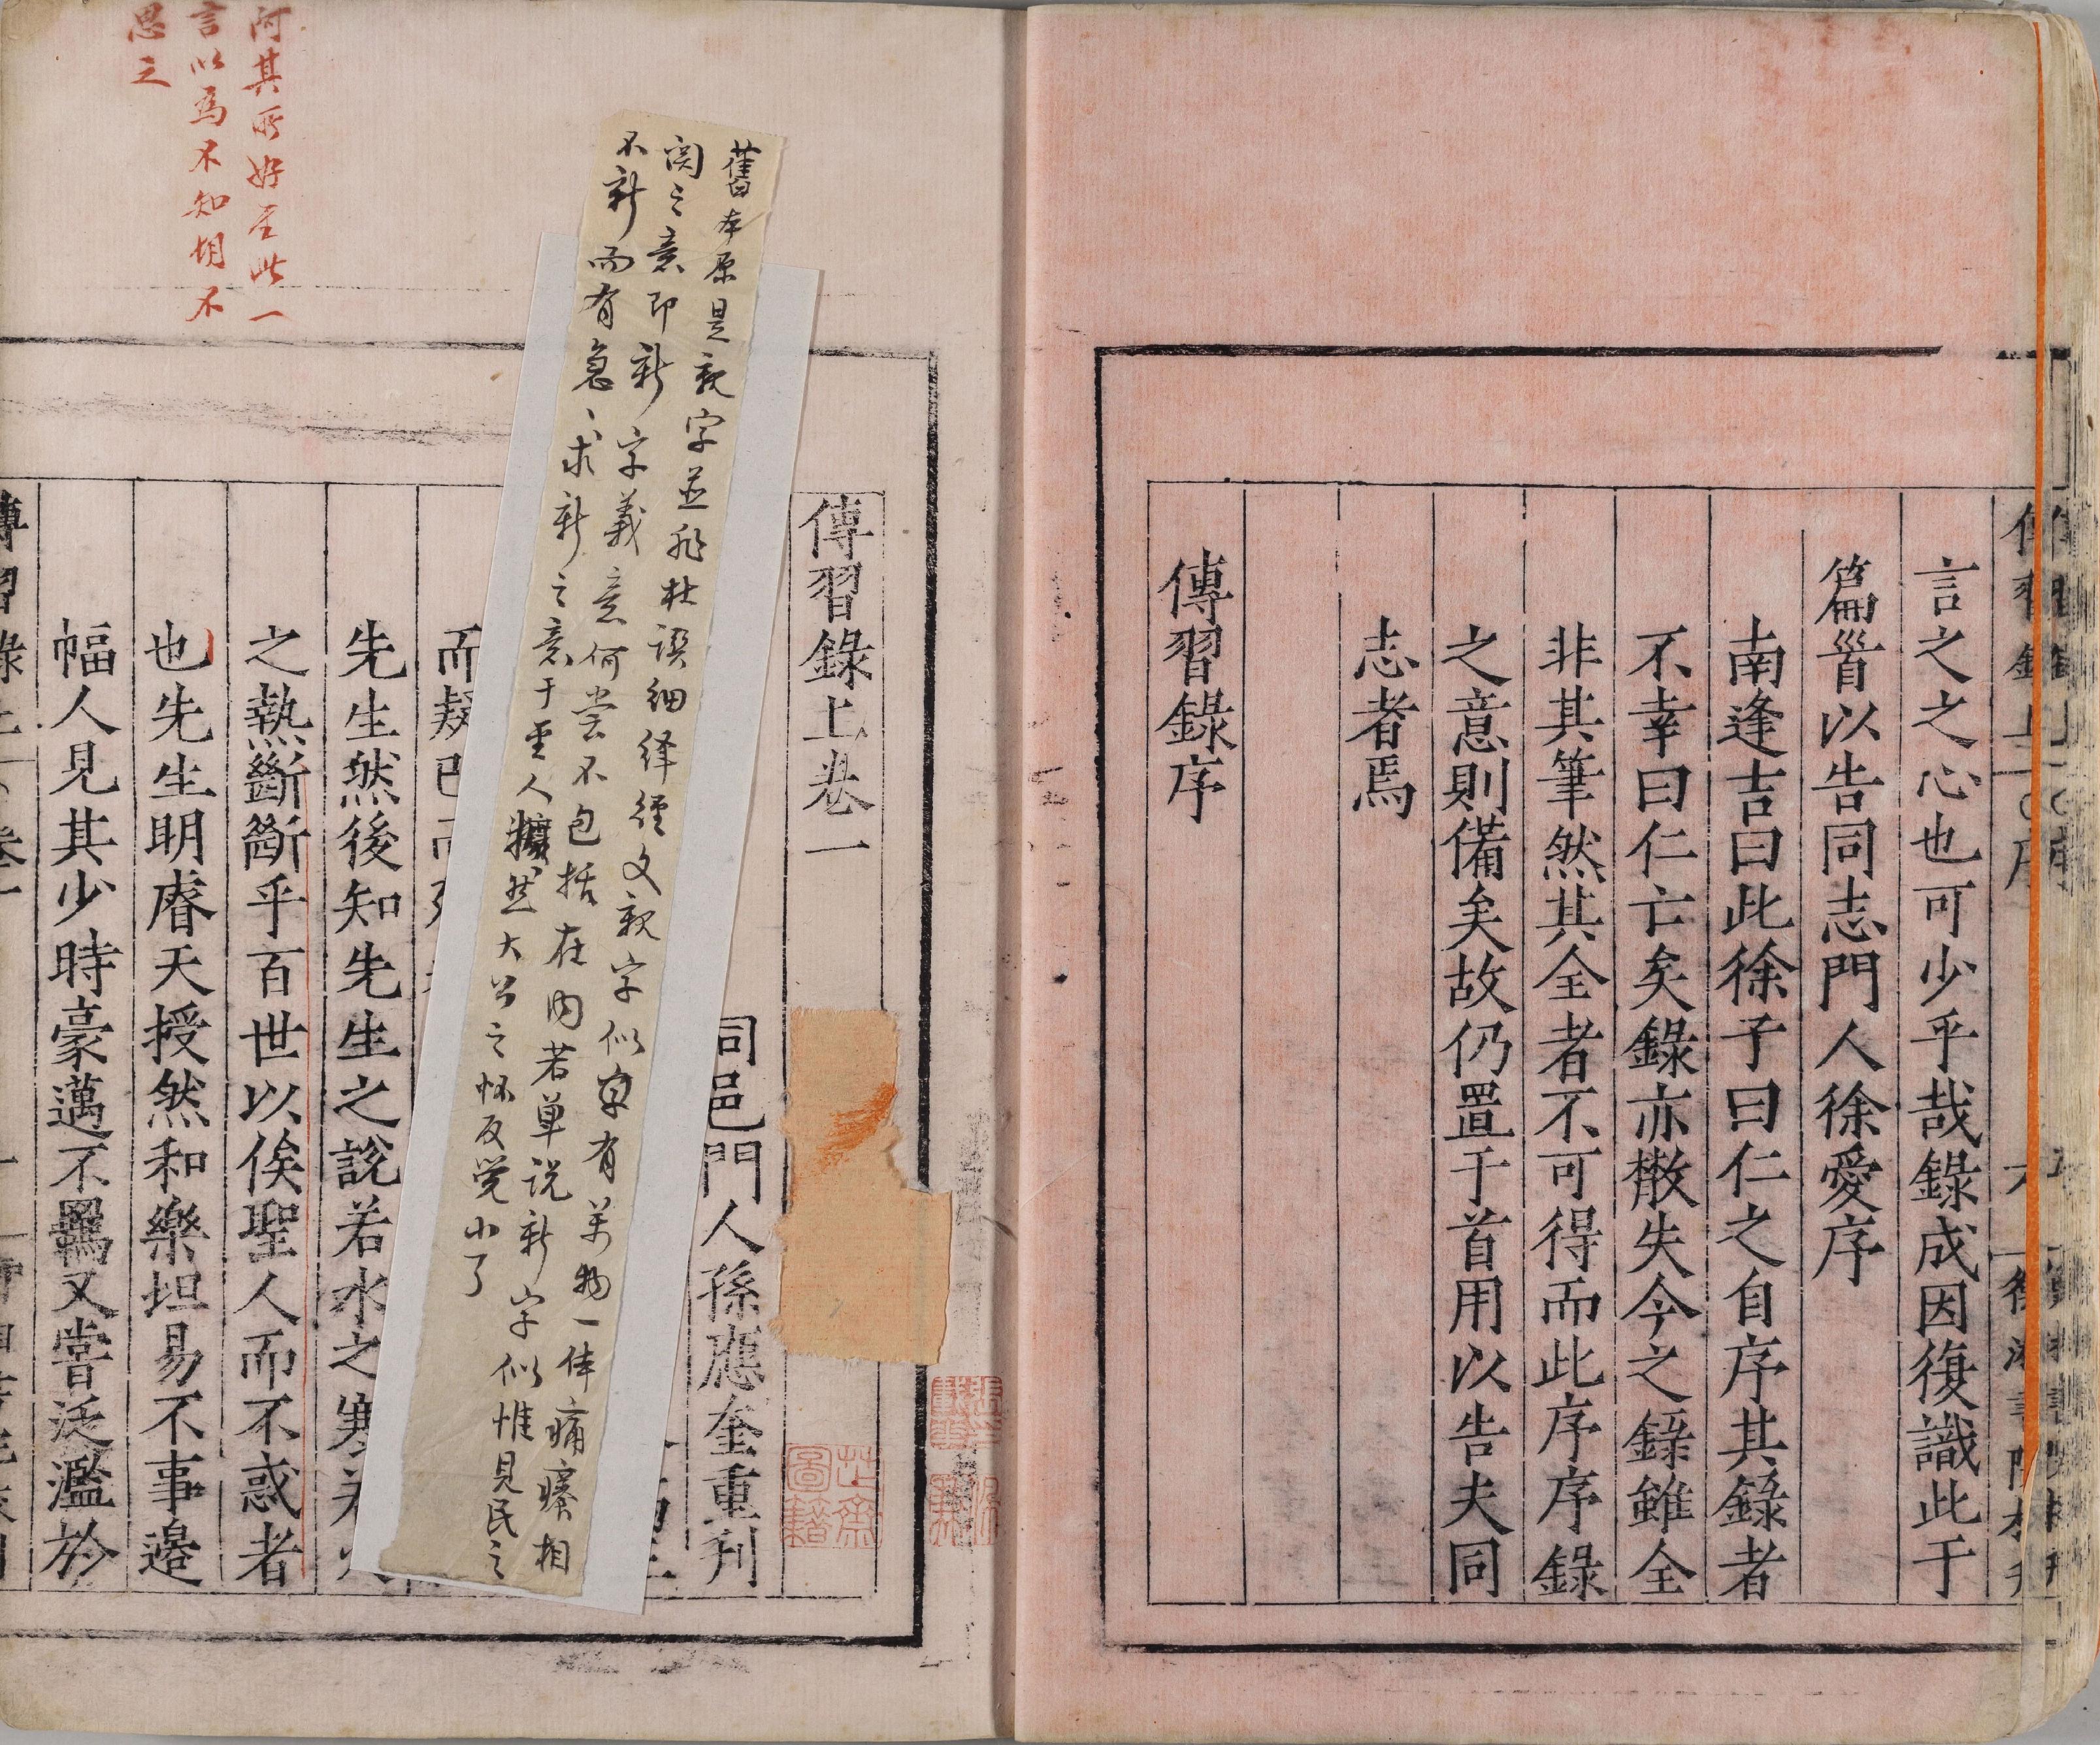 言之之心也可少乎哉錄成因復識此于
篇首以告同志門人徐愛序
南逢吉曰此徐子曰仁之自序其錄者
不幸曰仁亡矣錄亦散失今之錄雖全
非其筆然其全者不可得而此序序錄
之意則備矣故仍置于首用以告夫同
志者焉
傳習錄序
傳習錄上卷一
同邑門人孫應奎重刋
舊本原是親字並非杜譔細绎經文親字似卓有萬物一体痛癢相
関之意即新字義意何尝不包括在內若单说新字似惟見民之
不新而有急〻求新之意于聖人擴然大公之怀反觉小了
先生然後知先生之說若水之寒若火
之熱斷斷乎百世以俟聖人而不惑者
也先生明睿天授然和樂坦易不事邉
幅人見其少時豪邁不羈又嘗泛濫於
阿其所好至此一
言以爲不知胡不
思之